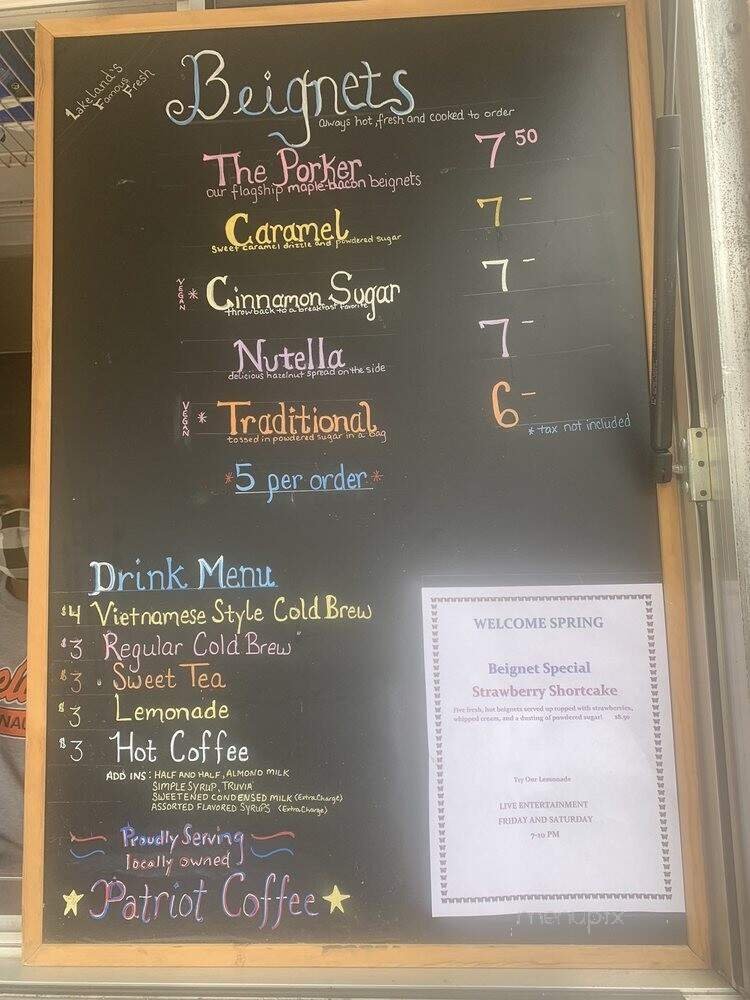 Lakeland's
Famous
Fresh
Beignets
always hot, fresh and cooked to order
The Porker 7 50
our flagship maple-bacon beignets
Caramel 7 -
sweet caramel drizzle and powdered sugar
VEGAN * Cinnamon Sugar 7 -
throwback to a breakfast favorite
Nutella 7 -
delicious hazelnut spread on the side
VEGAN * Traditional 6 -
tossed in powdered sugar in a bag
* tax not included
*5 per order*
Drink Menu
$4 Vietnamese Style Cold Brew
$3 Regular Cold Brew
$3 Sweet Tea
$3 Lemonade
$3 Hot Coffee
ADD INS: HALF AND HALF, ALMOND MILK
SIMPLE SYRUP, TRUVIA
SWEETENED CONDENSED MILK (Extra Charge)
ASSORTED FLAVORED SYRUPS (Extra Charge)
Proudly Serving
locally owned
Patriot Coffee
WELCOME SPRING
Beignet Special
Strawberry Shortcake
Five fresh, hot beignets served up topped with strawberries,
whipped cream, and a dusting of powdered sugar! $8.50
Try Our Lemonade
LIVE ENTERTAINMENT
FRIDAY AND SATURDAY
7-10 PM
menupix